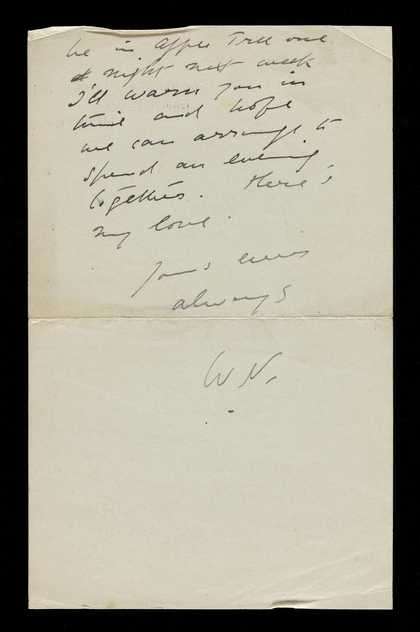 be in Apple Tree one
night next week
I'll warn you in
time and hope
we can arrange to
spend an evening
together. Here's
my love.
Yours ever
always
W N.